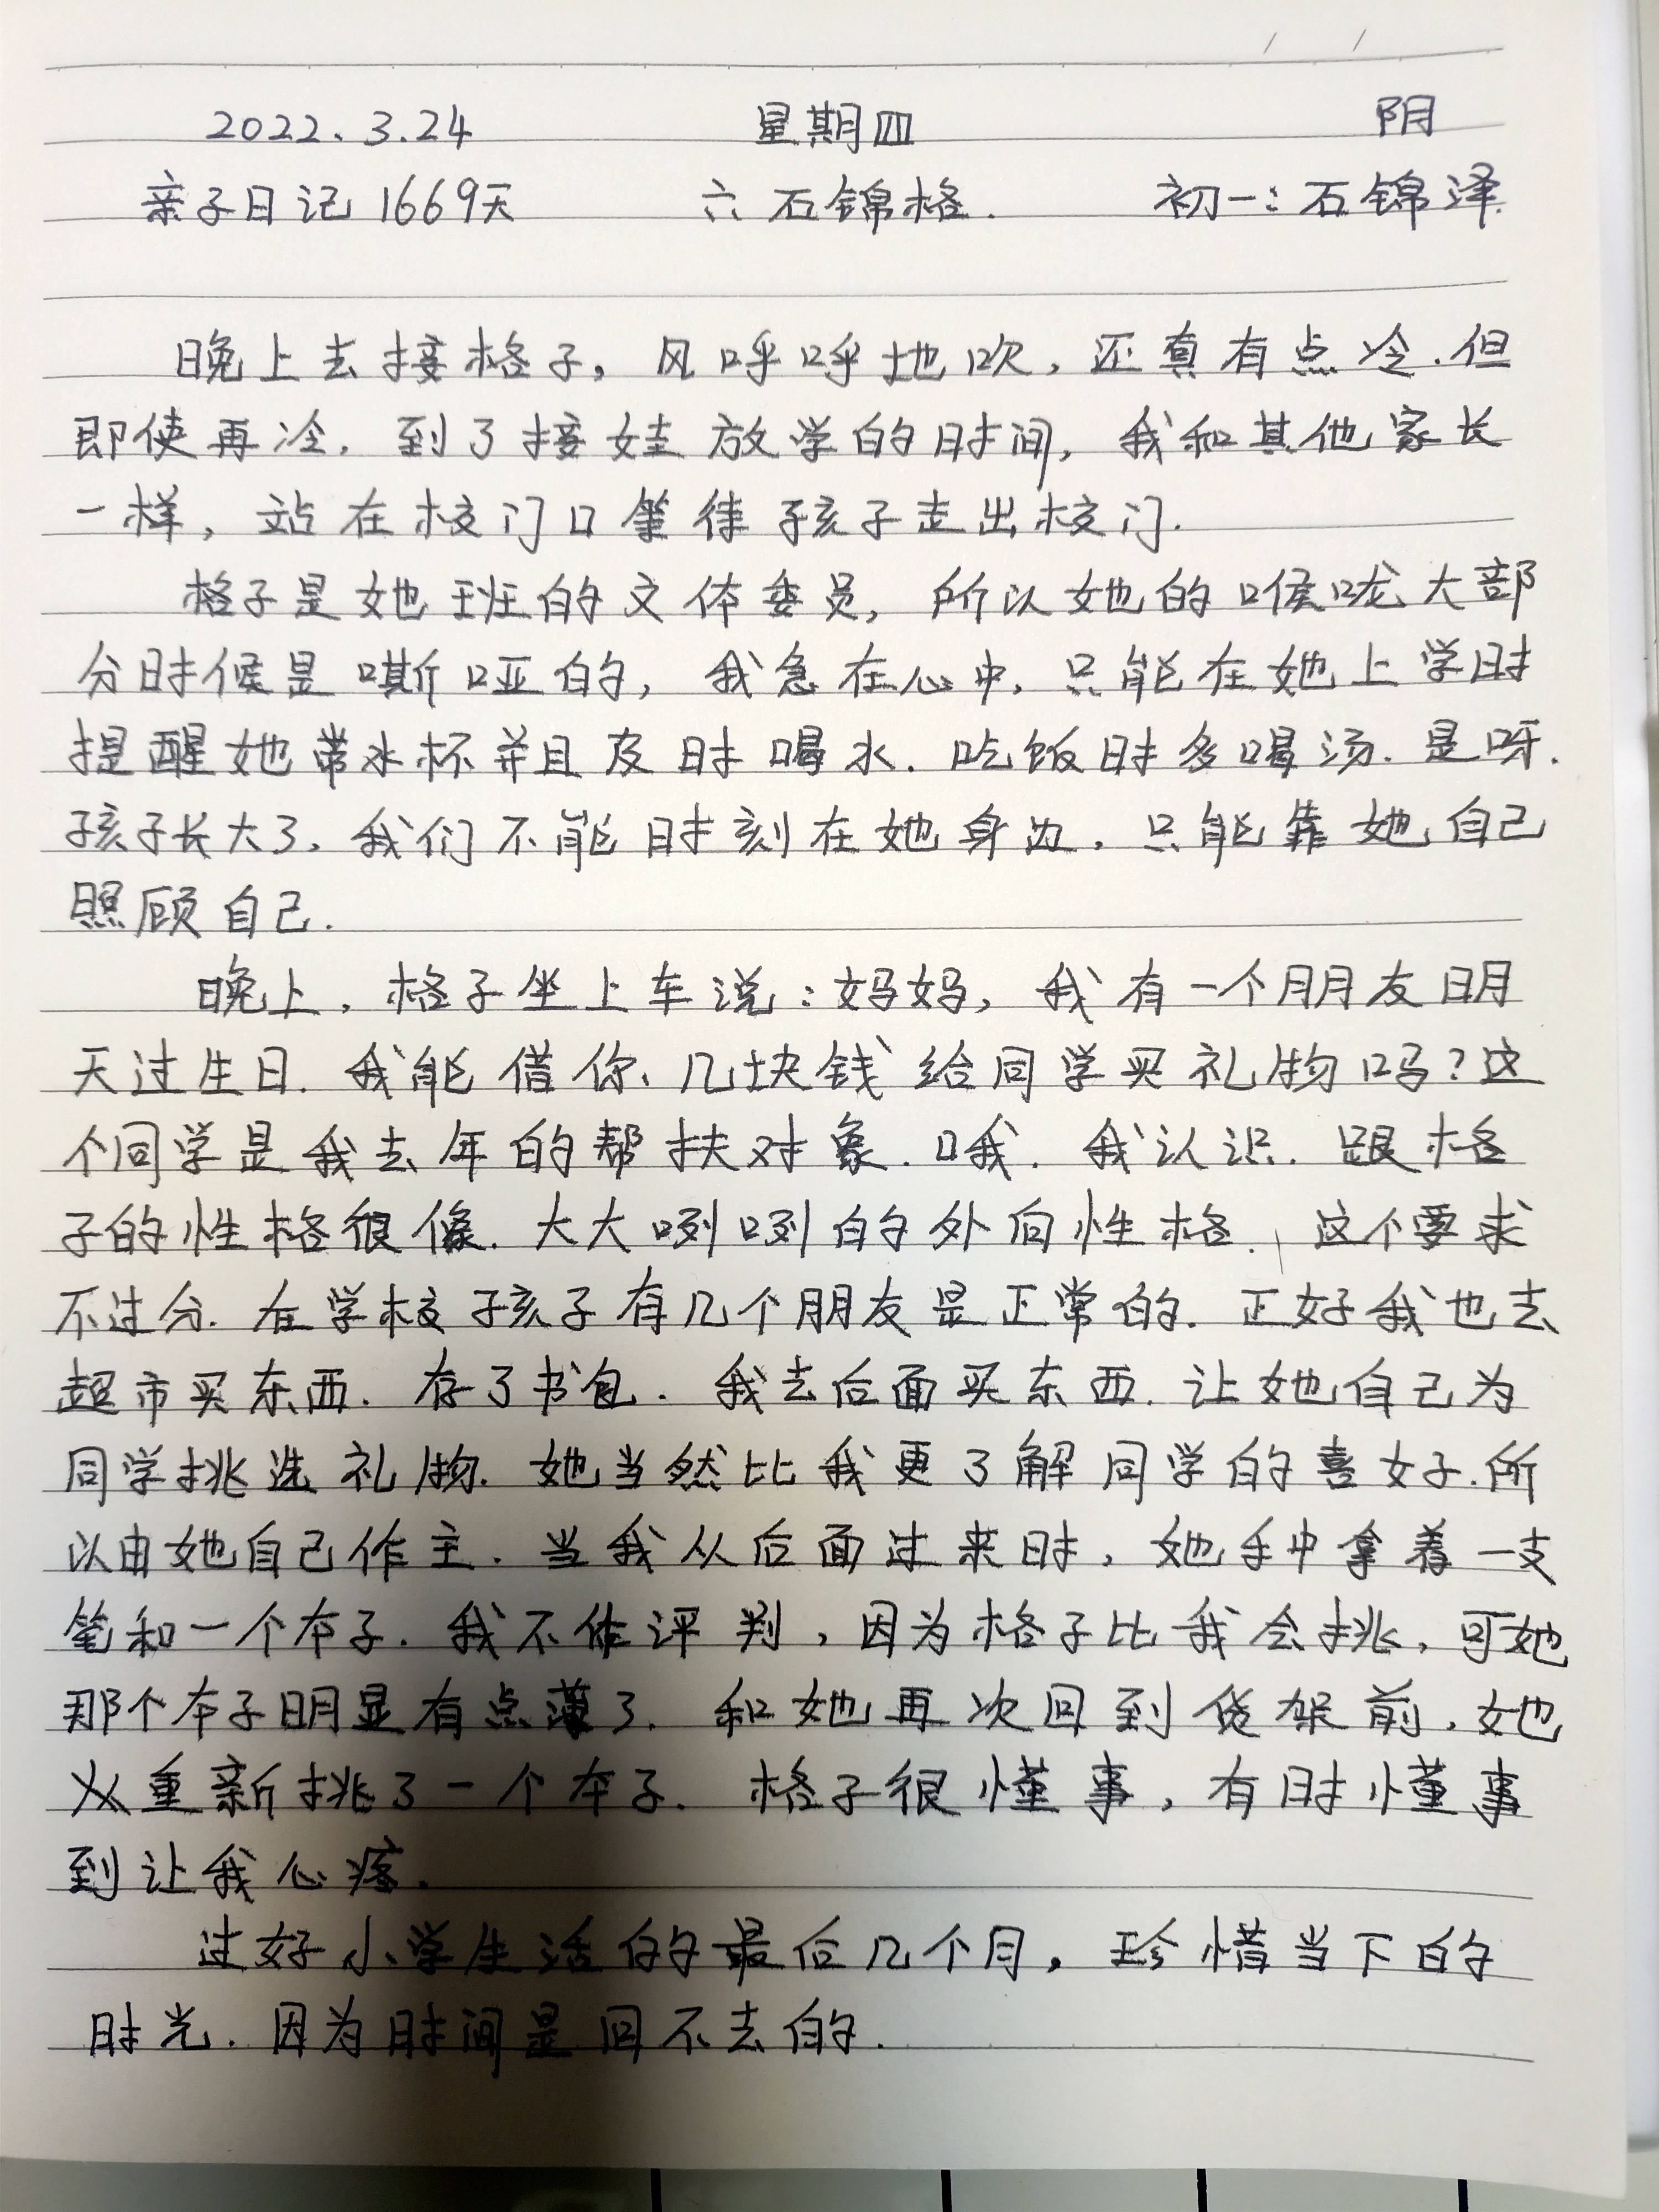 2022.3.24 星期四 阴
亲子日记1669天 六 石锦格. 初一:石锦泽.
晚上去接格子,风呼呼地吹,还真有点冷.但
即使再冷,到了接娃放学的时间,我和其他家长
一样,站在校门口等待孩子走出校门.
格子是她班的文体委员,所以她的喉咙大部
分时候是嘶哑的,我急在心中,只能在她上学时
提醒她带水杯并且及时喝水.吃饭时多喝汤.是呀.
孩子长大了,我们不能时刻在她身边,只能靠她自己
照顾自己.
晚上,格子坐上车说:妈妈,我有一个朋友明
天过生日.我能借你几块钱给同学买礼物吗?这
个同学是我去年的帮扶对象.哦.我认识.跟格
子的性格很像.大大咧咧的外向性格.这个要求
不过分.在学校孩子有几个朋友是正常的.正好我也去
超市买东西.存了书包.我去后面买东西.让她自己为
同学挑选礼物.她当然比我更了解同学的喜好.所
以由她自己作主.当我从后面过来时,她手中拿着一支
笔和一个本子.我不作评判,因为格子比我会挑,可她
那个本子明显有点薄了.和她再次回到货架前,她
又重新挑了一个本子.格子很懂事,有时懂事
到让我心疼.
过好小学生活的最后几个月,珍惜当下的
时光.因为时间是回不去的.